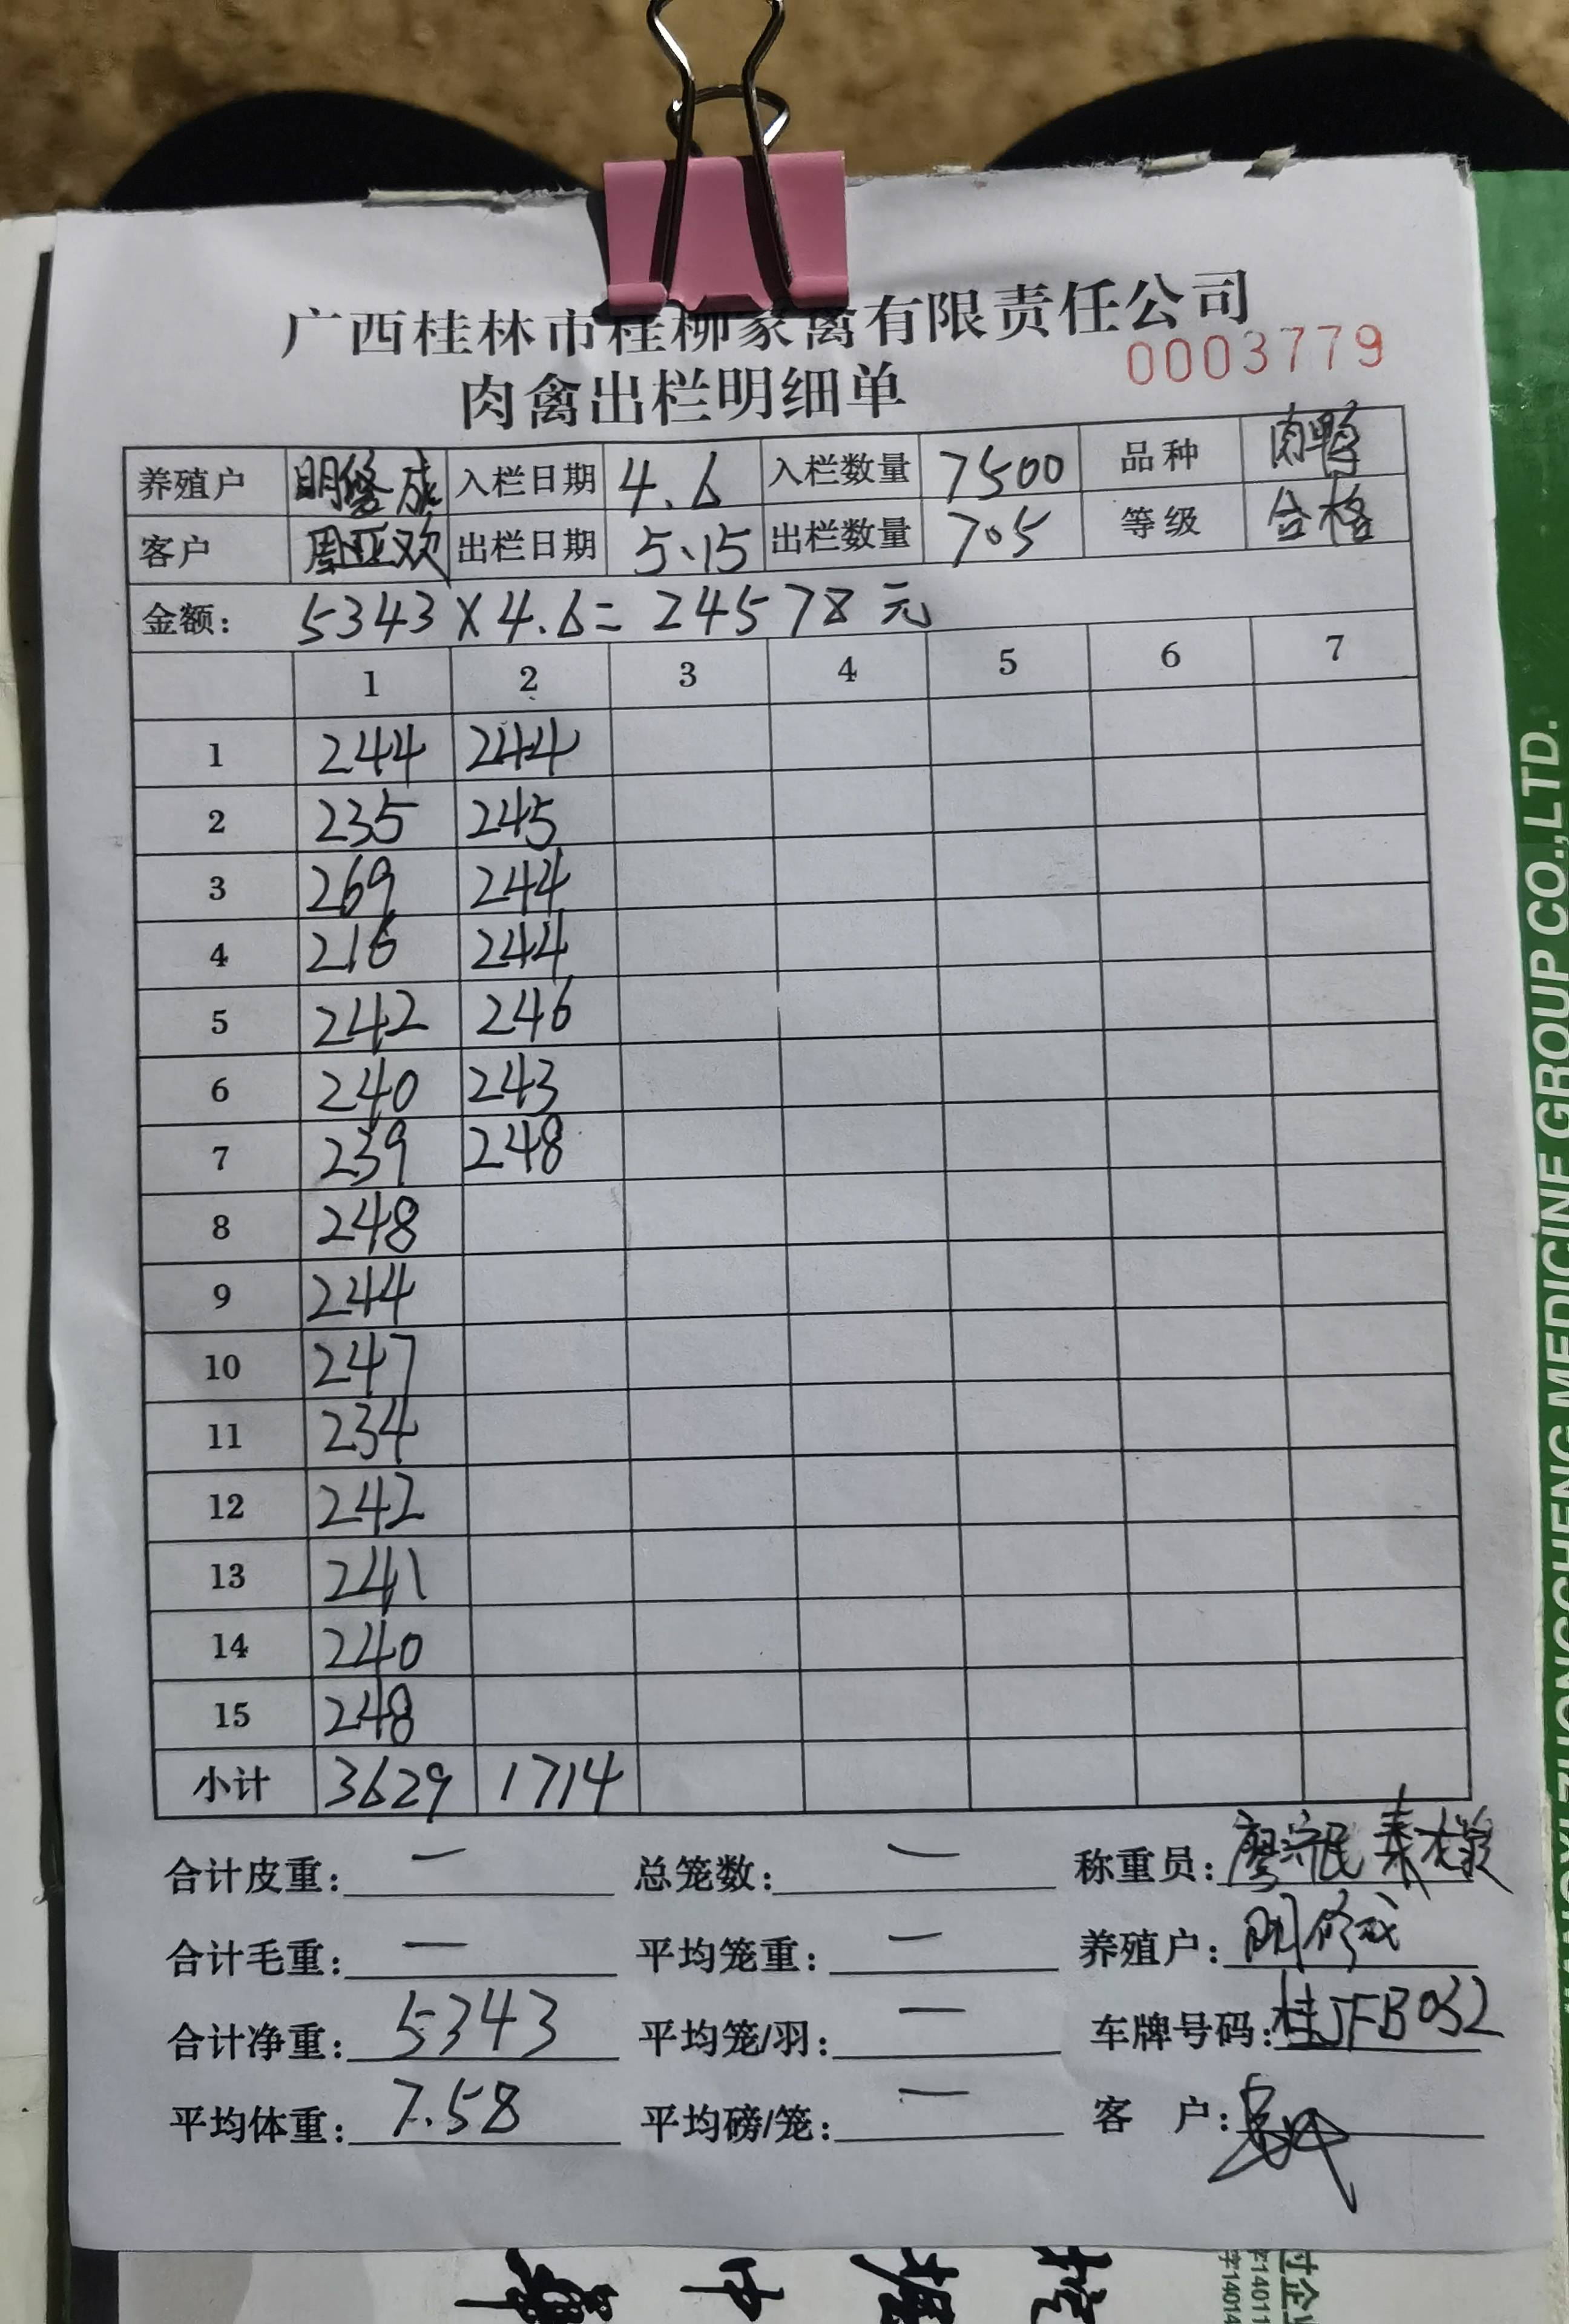 广西桂林市桂柳家禽有限责任公司
0003779
肉禽出栏明细单
养殖户 明修成 入栏日期 4.6 入栏数量 7500 品种 肉鸭
客户 周亚欢 出栏日期 5、15 出栏数量 705 等级 合格
金额: 5343×4.6=24578元
1 2 3 4 5 6 7
1 244 244
2 235 245
3 269 244
4 216 244
5 242 246
6 240 243
7 239 248
8 248
9 244
10 247
11 234
12 242
13 241
14 240
15 248
小计 3629 1714
合计皮重: — 总笼数: — 称重员: 廖宗民
合计毛重: — 平均笼重: — 养殖户: 明修成
合计净重: 5343 平均笼/羽: — 车牌号码: 桂JFB032
平均体重: 7.58 平均磅/笼: — 客户:
GUANGXI ZHONGCHENG MEDICINE GROUP CO.,LTD.